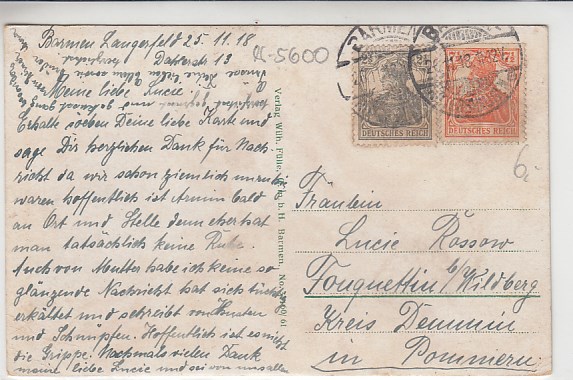 Barmen Langerfeld 25.11.18
Dahlerstr. 13
Meine liebe Lucie!
Erhalte soeben Deine liebe Karte und
sage Dir herzlichen Dank für Nach-
richt da wir schon ziemlich unruhig
waren hoffentlich ist Armin bald
an Ort und Stelle denn eher hat
man tatsächlich keine Ruhe.
Auch von Mutter habe ich keine so
glänzende Nachricht hat sich tüchtig
erkältet und schreibt von Husten
und Schnupfen. Hoffentlich ist es nicht
die Grippe. Nochmals vielen Dank
meine liebe Lucie und sei von uns allen
Verlag Wilh. Fülle, Barmen
BARMEN
DEUTSCHES REICH
DEUTSCHES REICH
-5600
6,-
Fräulein
Lucie Rossow
Fouquettin b/Wildberg
Kreis Demmin
in Pommern